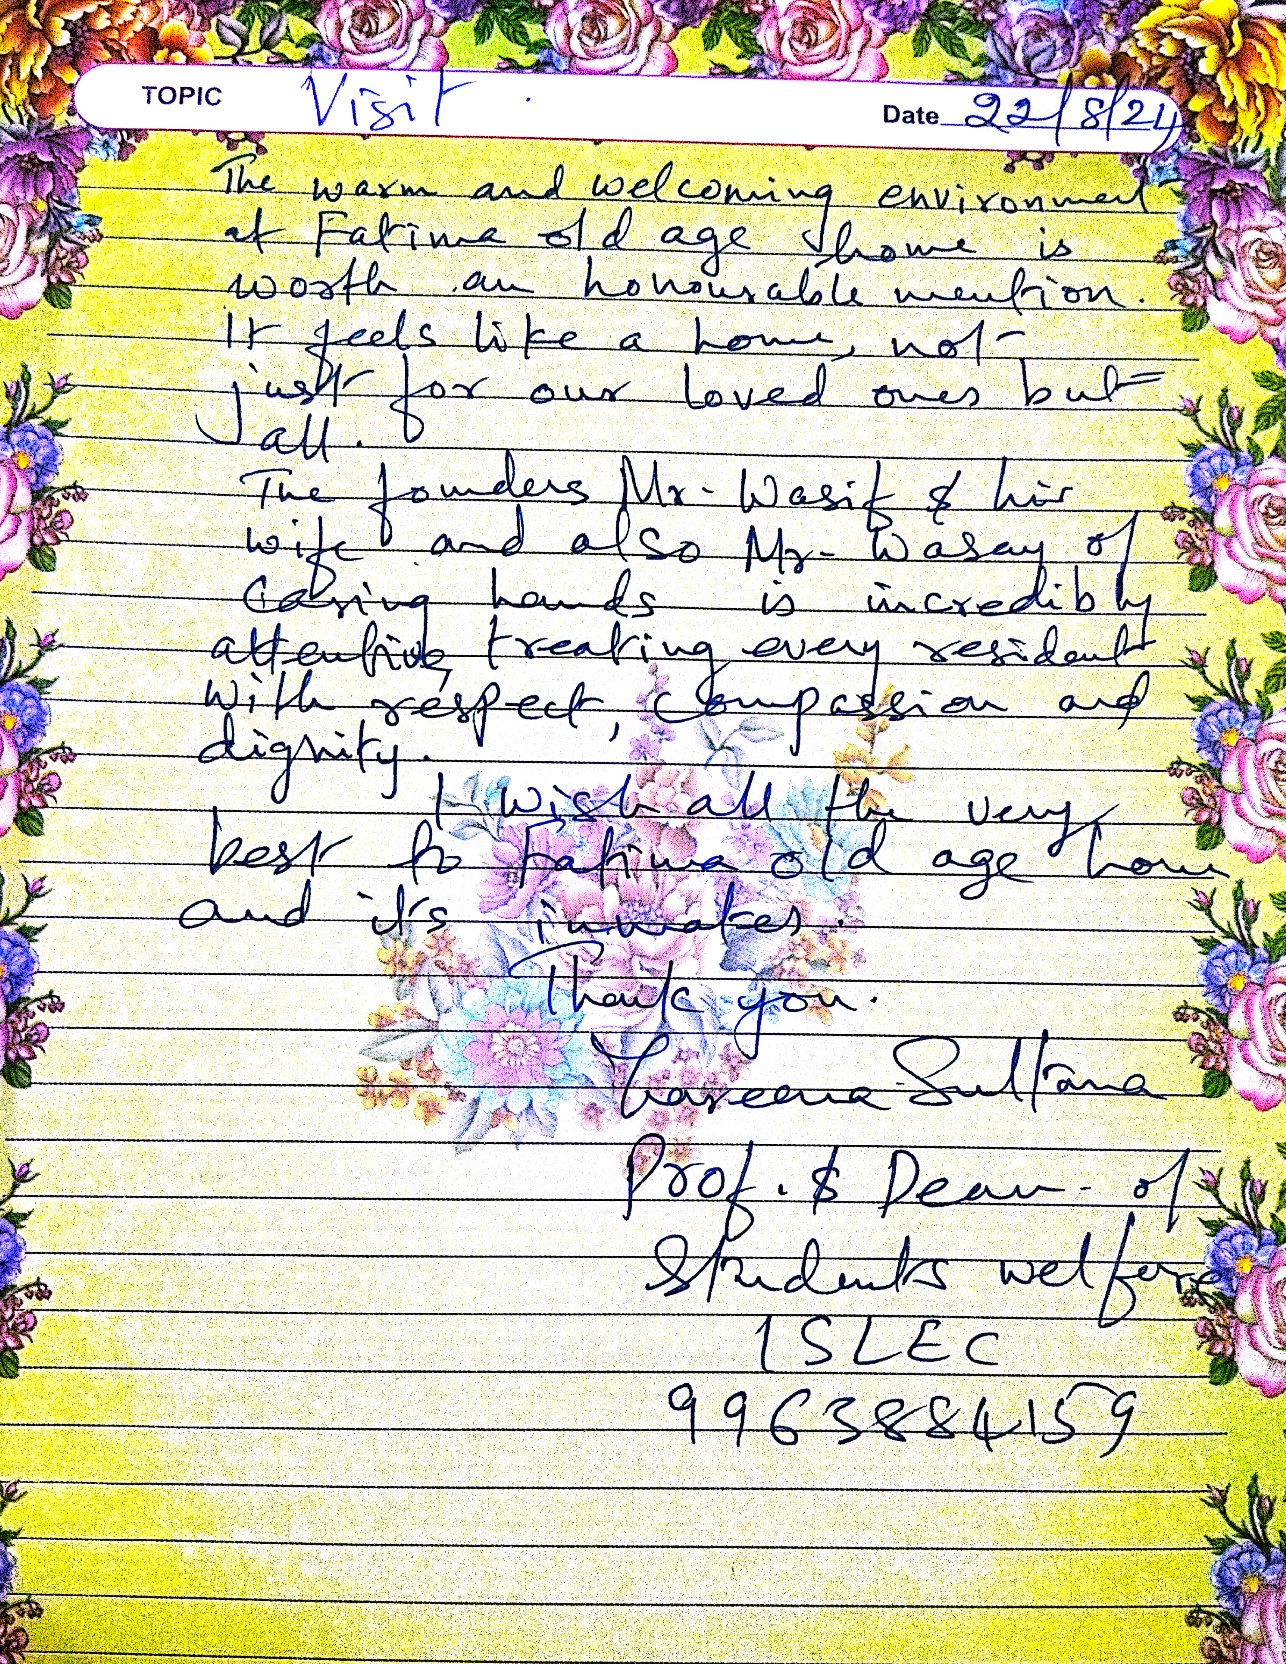 TOPIC Visit Date 22/8/24
The warm and welcoming environment
at Fatima old age home is
worth an honourable mention.
It feels like a home, not
just for our loved ones but
all.
The founders Mr. Wasif & his
wife and also Mr. Wasay of
Caring hands is incredibly
attentive, treating every resident
with respect, compassion and
dignity.
I wish all the very
best to Fatima old age home
and it's inmates.
Thank you.
Sultana
Prof. & Dean of
Students welfare
ISLEC
9963884159